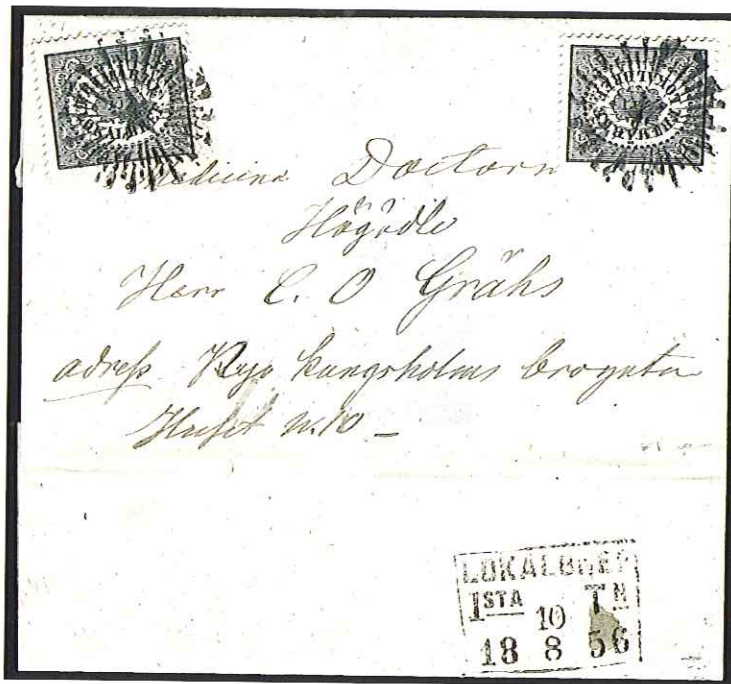 Medicine Doctorn
Högädle
Herr C. O Grähs
adress Nya Kungsholms brogata
Huset N. 10 –
LOKALBREF
1STA 10 TN
18 8 56